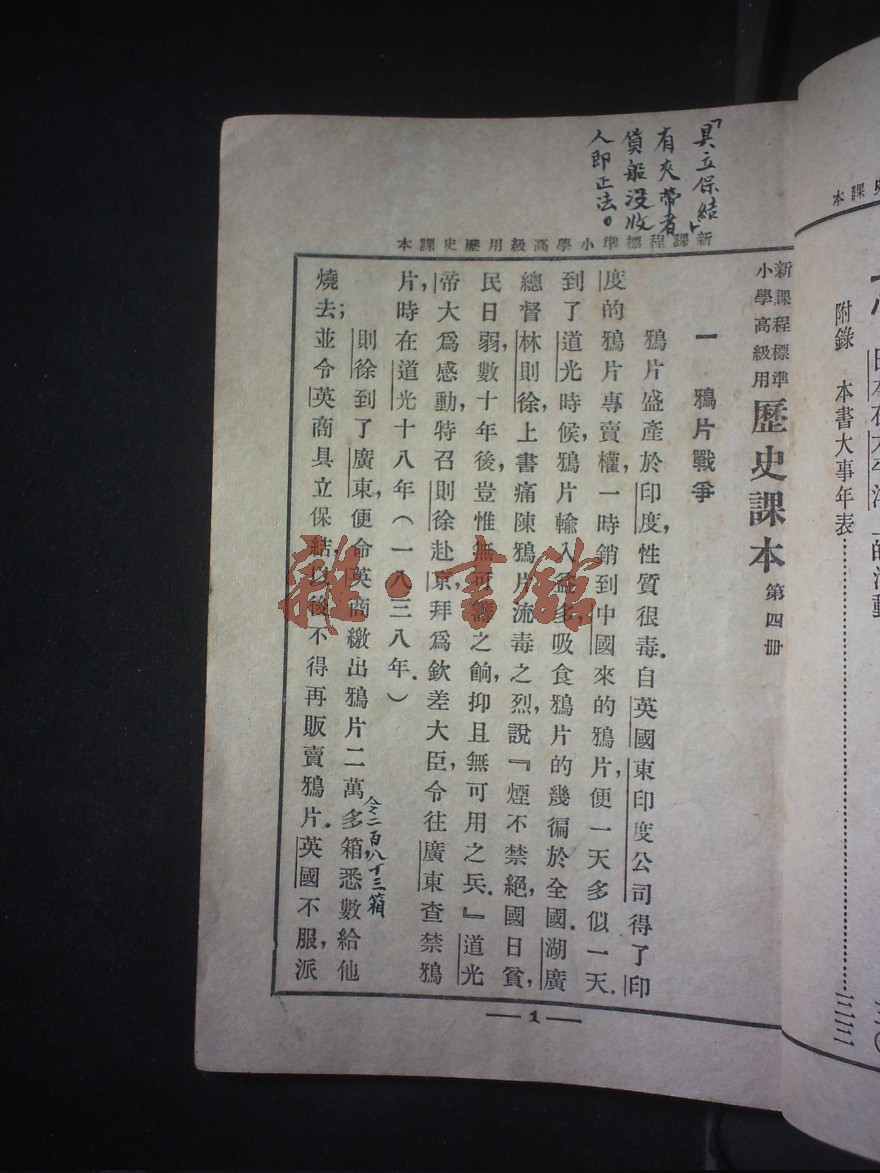 「具立保結」
有夾帶者
貨船沒收
人即正法。
新課程標準小學高級用歷史課本
新課程標準
小學高級用
歷史課本 第四冊
一 鴉片戰爭
鴉片盛產於印度,性質很毒.自英國東印度公司得了印
度的鴉片專賣權,一時銷到中國來的鴉片,便一天多似一天.
到了道光時候,鴉片輸入益多,吸食鴉片的幾徧於全國.湖廣
總督林則徐,上書痛陳鴉片流毒之烈,說『煙不禁絕,國日貧,
民日弱,數十年後,豈惟無可籌之餉,抑且無可用之兵.』道光
帝大爲感動,特召則徐赴京,拜爲欽差大臣,令往廣東查禁鴉
片,時在道光十八年(一八三八年.)
則徐到了廣東,便命英商繳出鴉片二萬多箱悉數給他
令二百八十三箱
燒去;並令英商具立保結以後不得再販賣鴉片.英國不服,派
1
附錄 本書大事年表……三三